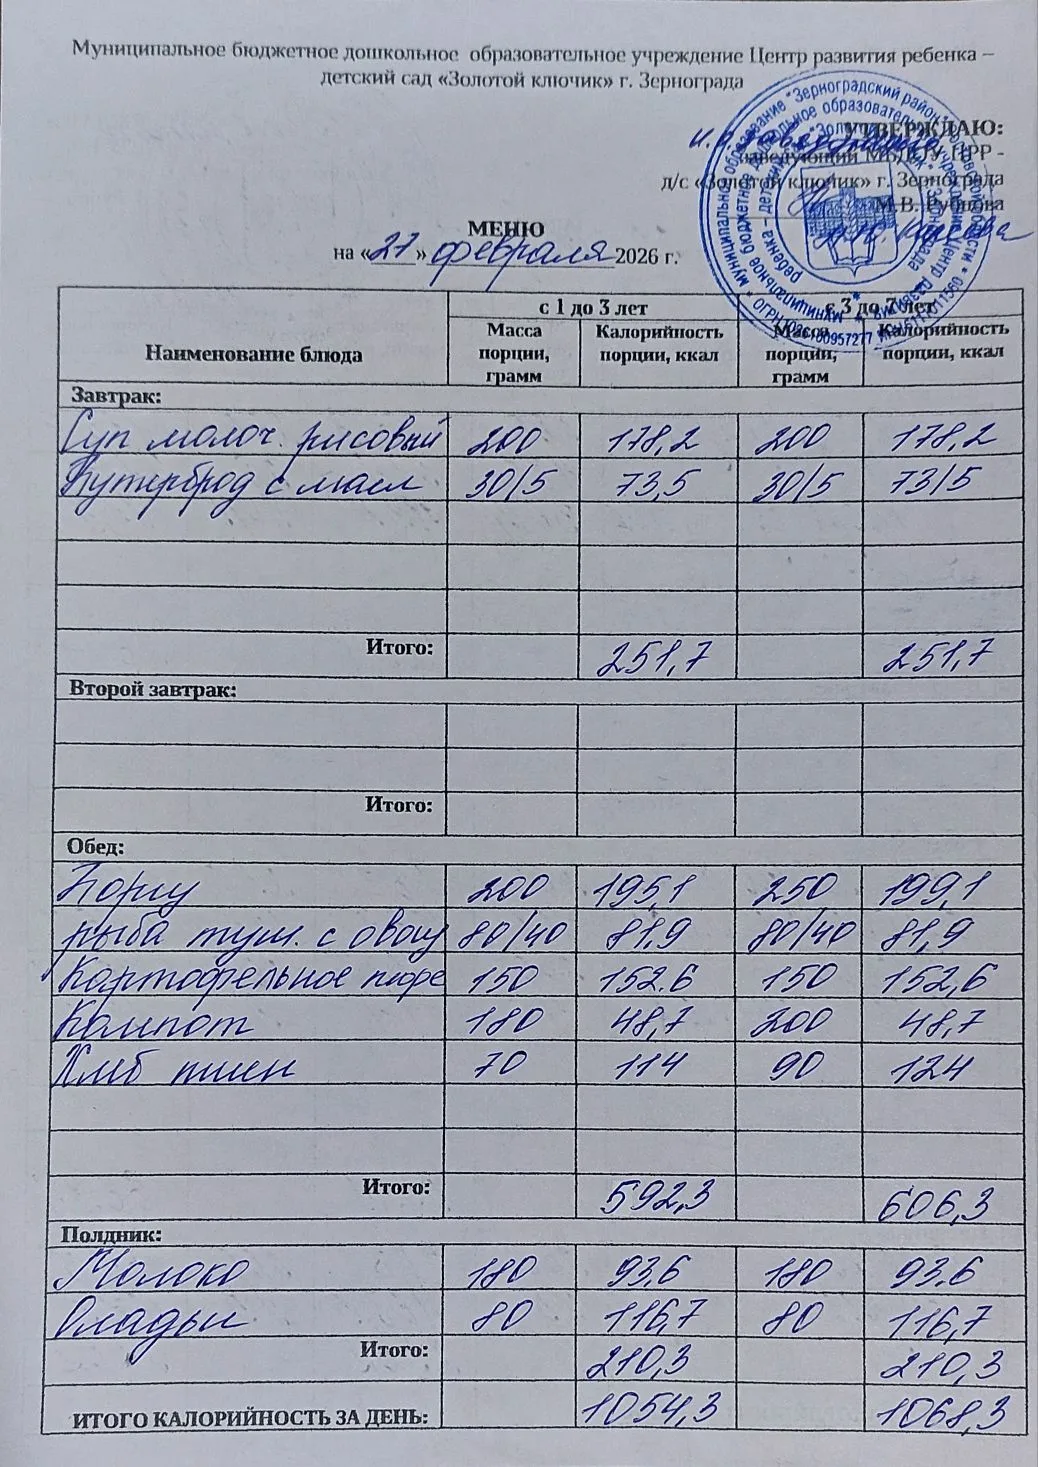 Муниципальное бюджетное дошкольное образовательное учреждение Центр развития ребенка –
детский сад «Золотой ключик» г. Зернограда
УТВЕРЖДАЮ:
и.о. заведующего
Заведующий МБДОУ ЦРР -
д/с «Золотой ключик» г. Зернограда
М.В. Рубцова
МЕНЮ
на «27» февраля 2026 г.
с 1 до 3 лет с 3 до 7 лет
Наименование блюда Масса порции, грамм Калорийность порции, ккал Масса порции, грамм Калорийность порции, ккал
Завтрак:
Суп молоч. рисовый 200 178,2 200 178,2
Бутерброд с масл 30/5 73,5 30/5 73/5
Итого: 251,7 251,7
Второй завтрак:
Итого:
Обед:
Борщ 200 195,1 250 199,1
рыба туш. с овощ 80/40 81,9 80/40 81,9
Картофельное пюре 150 152.6 150 152,6
Компот 180 48,7 200 48,7
Хлеб пшен 70 114 90 124
Итого: 592,3 606,3
Полдник:
Молоко 180 93,6 180 93,6
Оладьи 80 116,7 80 116,7
Итого: 210,3 210,3
ИТОГО КАЛОРИЙНОСТЬ ЗА ДЕНЬ: 1054,3 1068,3